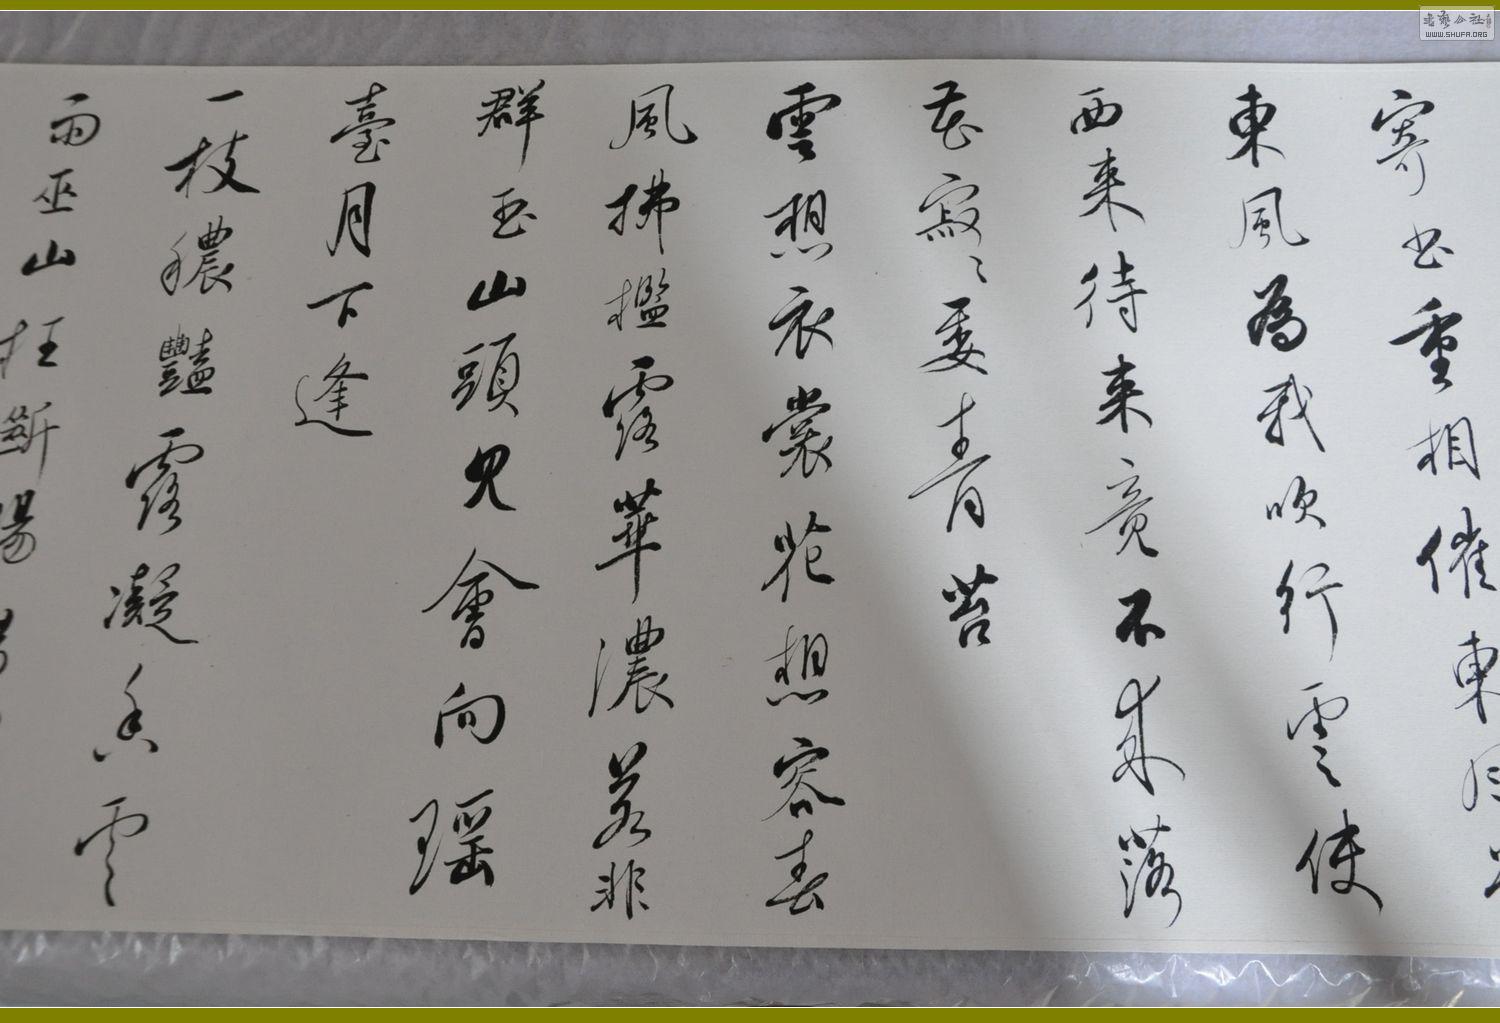 寄书重相催東
東風為我吹行雲使
西来待来竟不来落
花寂〻委青苔
雲想衣裳花想容春
風拂檻露華濃若非
群玉山頭見會向瑶
臺月下逢
一枝穠豔露凝香雲
雨巫山枉斷腸
WWW.SHUFA.ORG